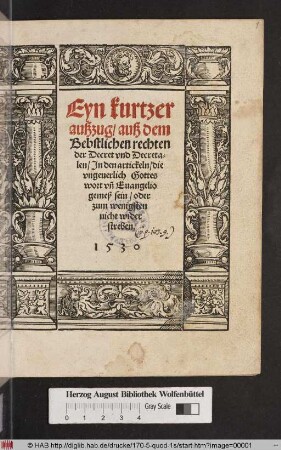 Eyn kurtzer
außzug / auß dem
Bebstlichen rechten
der Decret vnd Decreta-
len / In den artickeln / die
vngeuerlich Gottes
wort vñ Euangelio
gemeß sein / oder
zum wenigsten
nicht wider
streben.
1530
Herzog August Bibliothek Wolfenbüttel
Gray Scale
0 1 2 3 4
© HAB http://diglib.hab.de/drucke/170-5-quod-1s/start.htm?image=00001